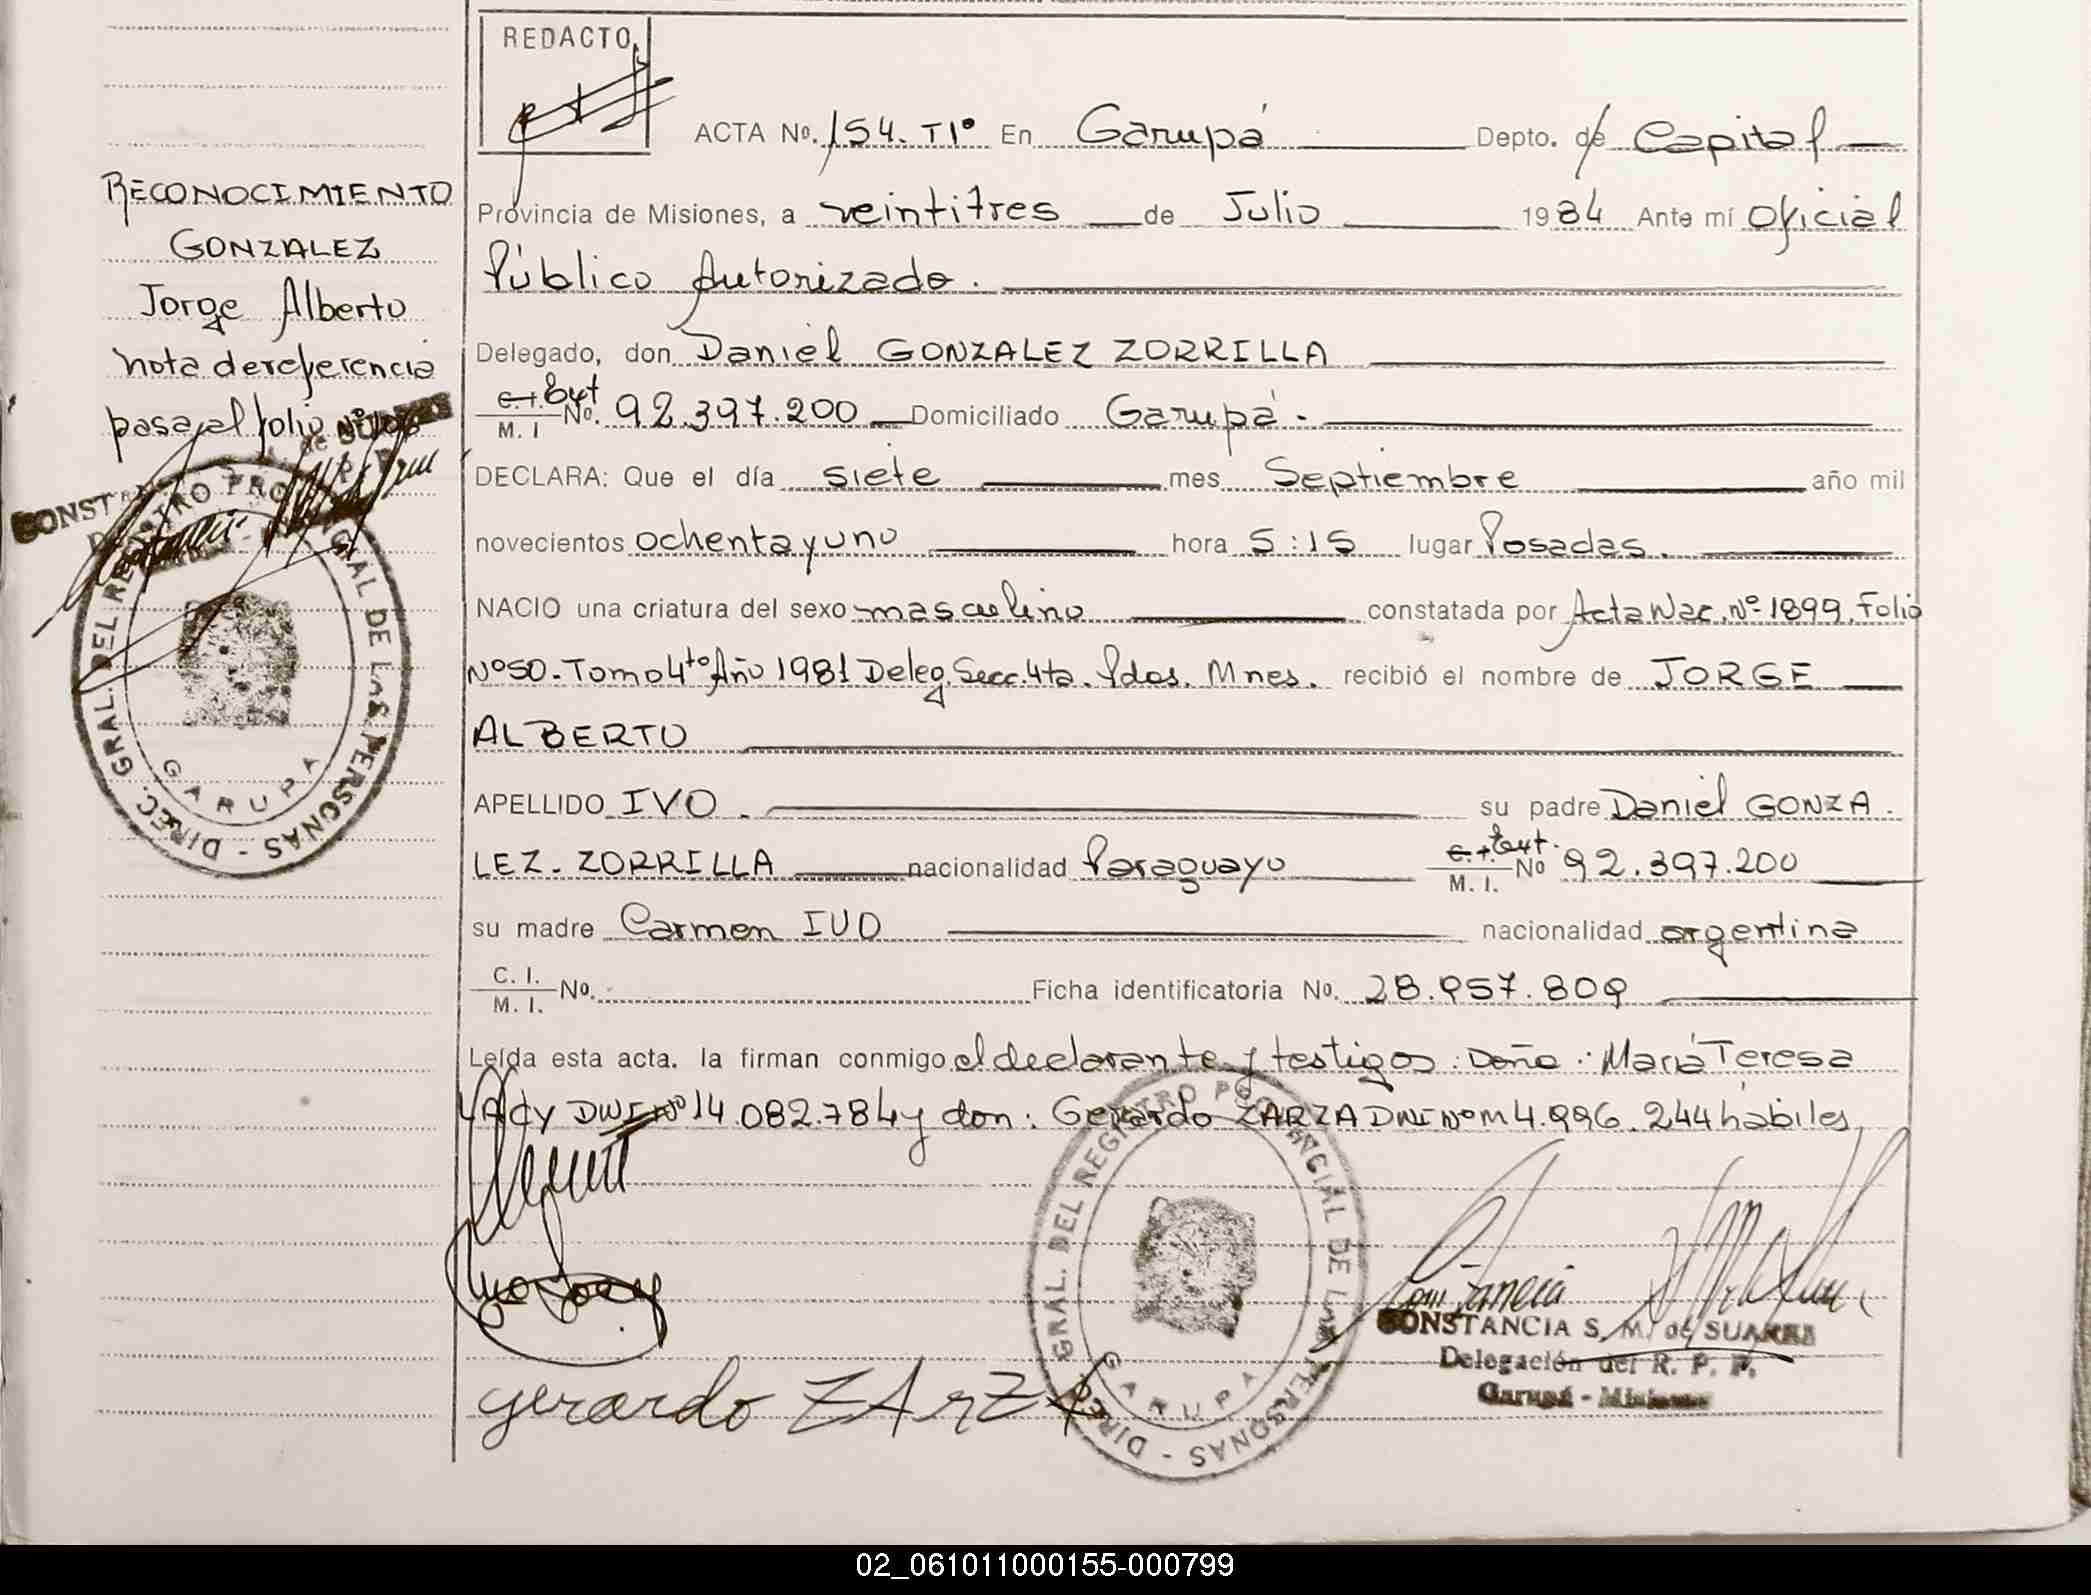 REDACTO
ACTA No. 154. TIº En Garupá Depto. de Capital
RECONOCIMIENTO
GONZALEZ
Jorge Alberto
nota de referencia
pasa al folio Nº
Provincia de Misiones, a veintitres de Julio 1984 Ante mí Oficial
Público Autorizado.
Delegado, don Daniel GONZALEZ ZORRILLA
C.I. Ext
M. I No. 92.397.200 Domiciliado Garupá.
DECLARA: Que el día siete mes Septiembre año mil
novecientos ochenta y uno hora 5:15 lugar Posadas.
NACIO una criatura del sexo masculino constatada por Acta Nac. Nº 1899, Folio
Nº 50. Tomo 4to Año 1981 Deleg. Secc. 4ta. Pdas. Mnes. recibió el nombre de JORGE
ALBERTO
APELLIDO IVO. su padre Daniel GONZA
LEZ. ZORRILLA nacionalidad Paraguayo C.I. Ext. M. I. No 92.397.200
su madre Carmen IVO nacionalidad argentina
C. I.
M. I. No. Ficha identificatoria No. 28.957.809
Leída esta acta. la firman conmigo el declarante y testigos: Doña: María Teresa
DNI Nº 14.082.784 y don: Gerardo ZARZA DNI Nº M 4.996.244 hábiles
gerardo ZArZA
CONSTANCIA S. M. de SUAREZ
Delegación del R. P. P.
Garupá - Misiones
DIREC. GRAL. DEL REGISTRO PROVINCIAL DE LAS PERSONAS
GARUPA
DIREC. GRAL. DEL REGISTRO PROVINCIAL DE LAS PERSONAS
GARUPA
02_061011000155-000799